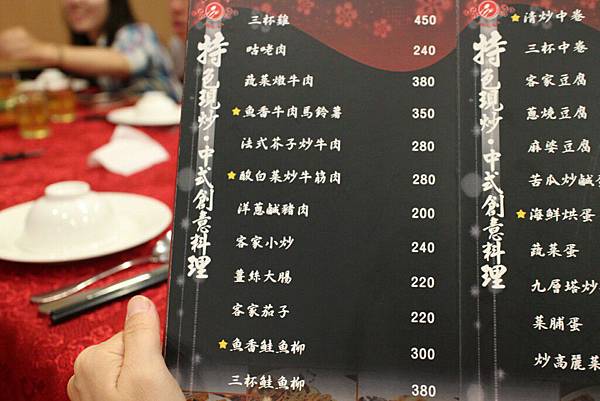 特色現炒・中式創意料理
三杯雞 450
咕咾肉 240
蔬菜燉牛肉 380
魚香牛肉馬鈴薯 350
法式芥子炒牛肉 280
酸白菜炒牛筋肉 280
洋蔥鹹豬肉 200
客家小炒 240
薑絲大腸 220
客家茄子 220
魚香鮭魚柳 300
三杯鮭魚柳 380
特色現炒・中式創意料理
清炒中卷
三杯中卷
客家豆腐
蔥燒豆腐
麻婆豆腐
苦瓜炒鹹
海鮮烘蛋
蔬菜蛋
九層塔炒
菜脯蛋
炒高麗菜